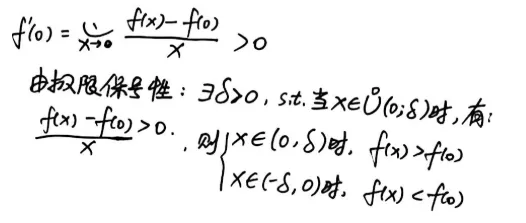 f'(0) = lim_{x→0} \frac{f(x)-f(0)}{x} > 0
由极限保号性：∃δ>0, s.t. 当x∈Ů(0;δ)时, 有:
\frac{f(x)-f(0)}{x} > 0. , 则 { x∈(0,δ)时, f(x)>f(0)
x∈(-δ,0)时, f(x)<f(0)